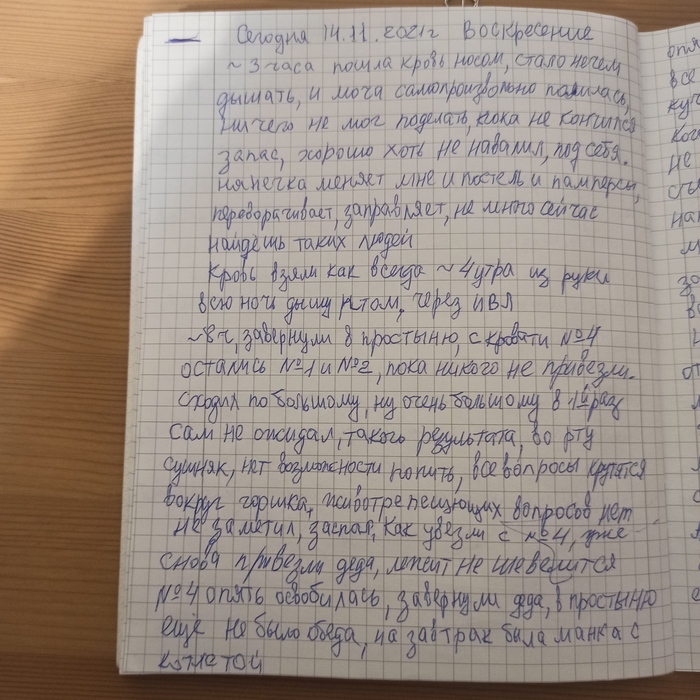 Сегодня 14.11.2021г Воскресение
~ 3 часа пошла кровь носом, стало нечем
дышать, и моча самопроизвольно полилась,
ничего не мог поделать, пока не кончился
запас, хорошо хоть не навалил, под себя.
нянечка меняет мне и постель и памперсы,
переворачивает, заправляет, не много сейчас
найдешь таких людей
Кровь взяли как всегда ~ 4 утра из руки
всю ночь дышу ртом, через ИВЛ
~8 ч, завернули в простыню, с кровати №4
остались №1 и №2, пока никого не привезли.
сходил по большому, ну очень большому в 1й раз
сам не ожидал, такого результата, во рту
сушняк, нет возможности попить, все вопросы крутятся
вокруг горшка, животрепещющих вопросов нет
не заметил, заспал, как увезли с №4, уже
снова привезли деда, лежит не шевелится
№4 опять освободилась, завернули деда, в простыню
ещё не было обеда, на завтрак была манка с
котлетой
опя
все
куч
ког
не
сты
нав
м
за